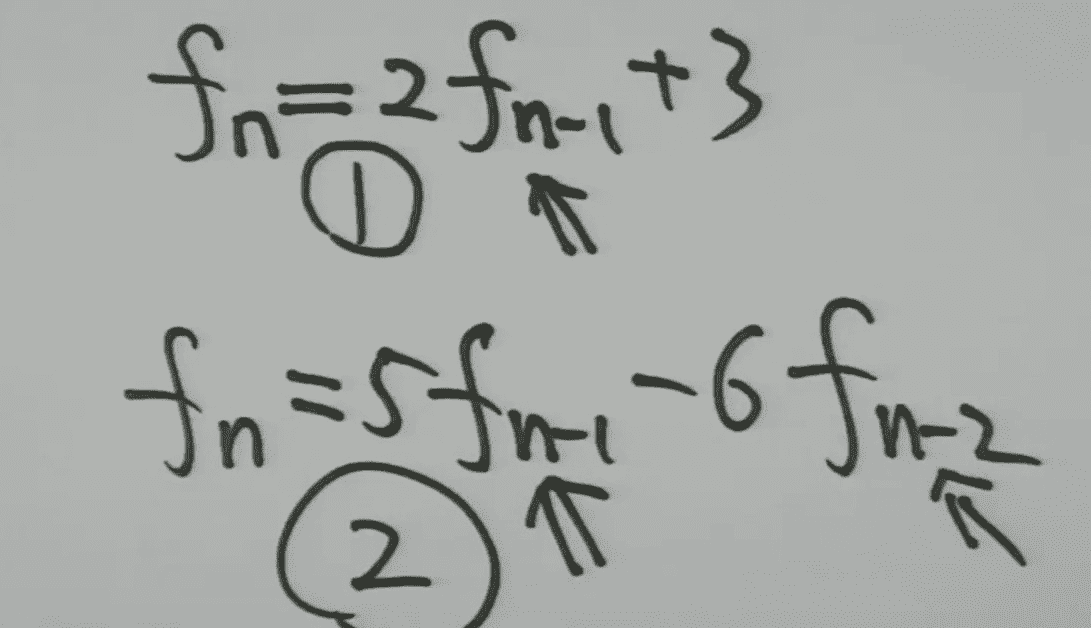 fₙ = 2fₙ₋₁ + 3
①
fₙ = 5fₙ₋₁ - 6fₙ₋₂
②